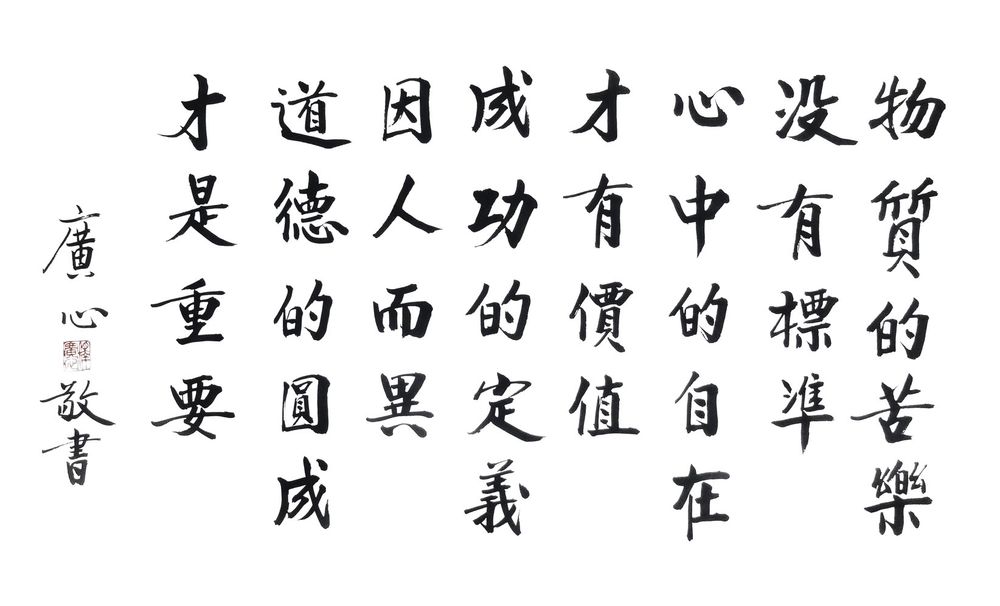 物質的苦樂
没有標準
心中的自在
才有價值
成功的定義
因人而異
道德的圓成
才是重要
廣心敬書